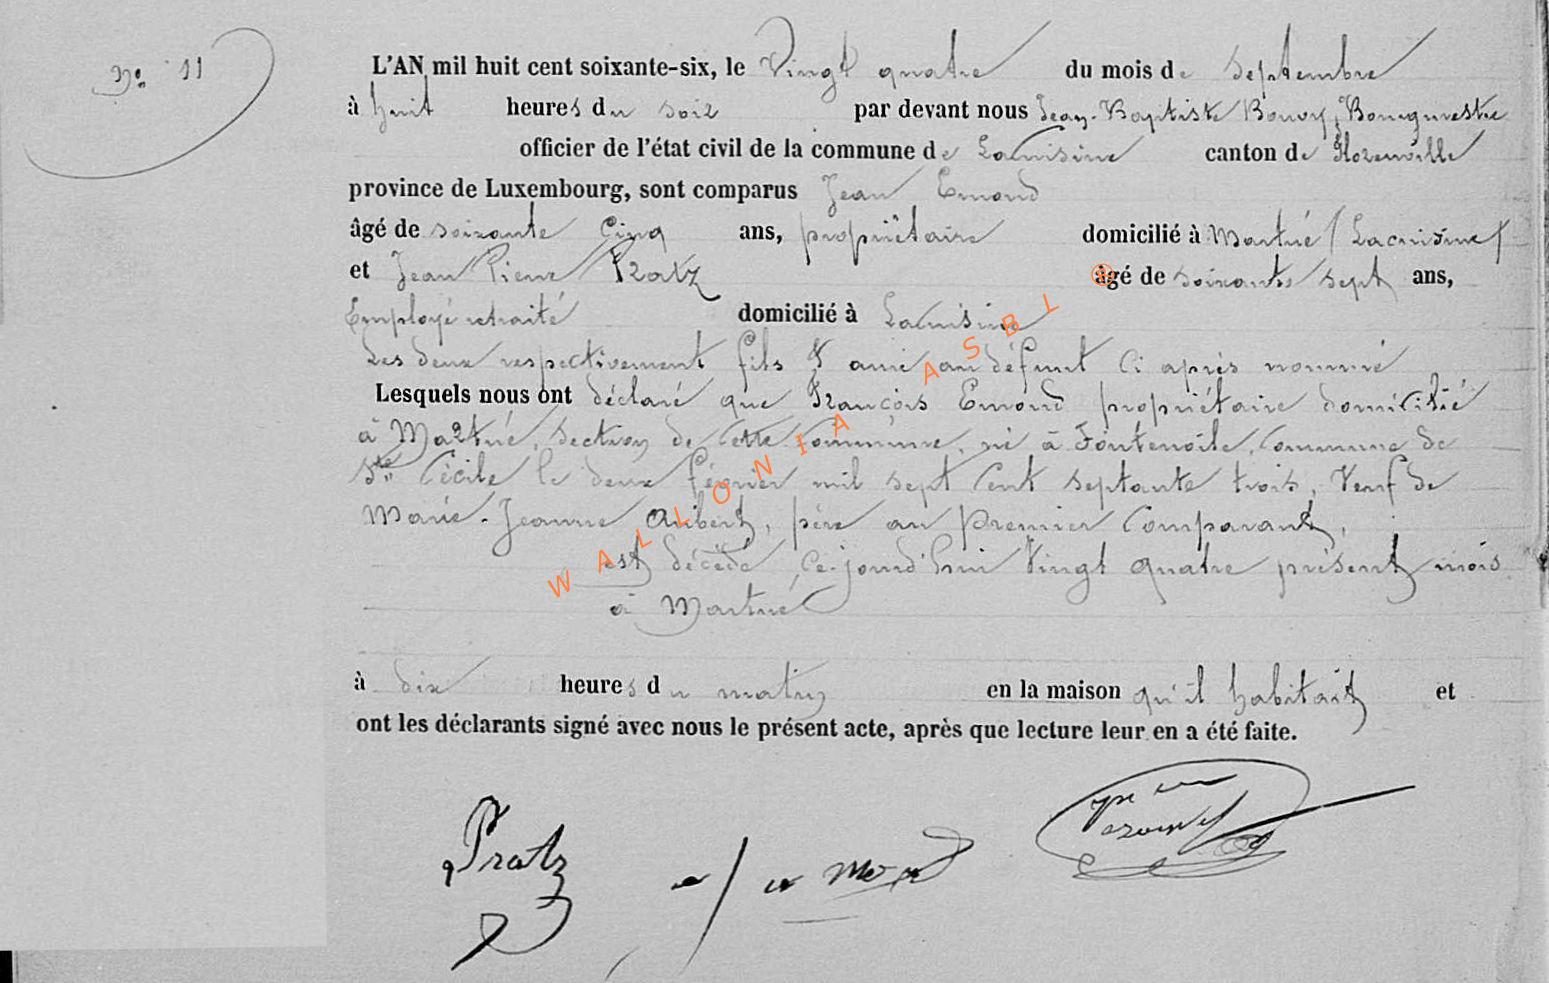 No 11
L'AN mil huit cent soixante-six, le Vingt quatre du mois de Septembre
à huit heures du soir par devant nous Jean-Baptiste Bouvy, Bourgmestre
officier de l'état civil de la commune de Lacuisine canton de Florenville
province de Luxembourg, sont comparus Jean Emond
âgé de soixante Cinq ans, propriétaire domicilié à Martué / Lacuisine /
et Jean Pierre Pratz âgé de soixante sept ans,
Employé retraité domicilié à Lacuisine
Les deux respectivement fils & ami au défunt Ci après nommé
Lesquels nous ont déclaré que François Emond propriétaire domicilié
à Martué, section de Cette Commune, né à Fontenoile, Commune de
Ste Cécile le deux février mil sept Cent septante trois, Veuf de
Marie-Jeanne Aribert, père au premier Comparant,
est décédé, Ce-jourd'hui Vingt quatre présent mois
à Martué
à dix heures du matin en la maison qu'il habitait et
ont les déclarants signé avec nous le présent acte, après que lecture leur en a été faite.
Pratz
WALLONIA ASBL ®